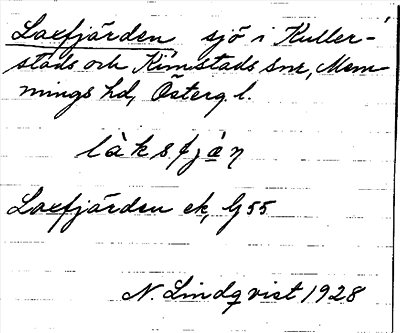 Laxfjärden sjö i Kuller-
stads och Kimstads snr, Mem-
mings hd, Österg. l.
làksfjạ̀ṇ
Laxfjärden ek, G 55
N. Lindqvist 1928